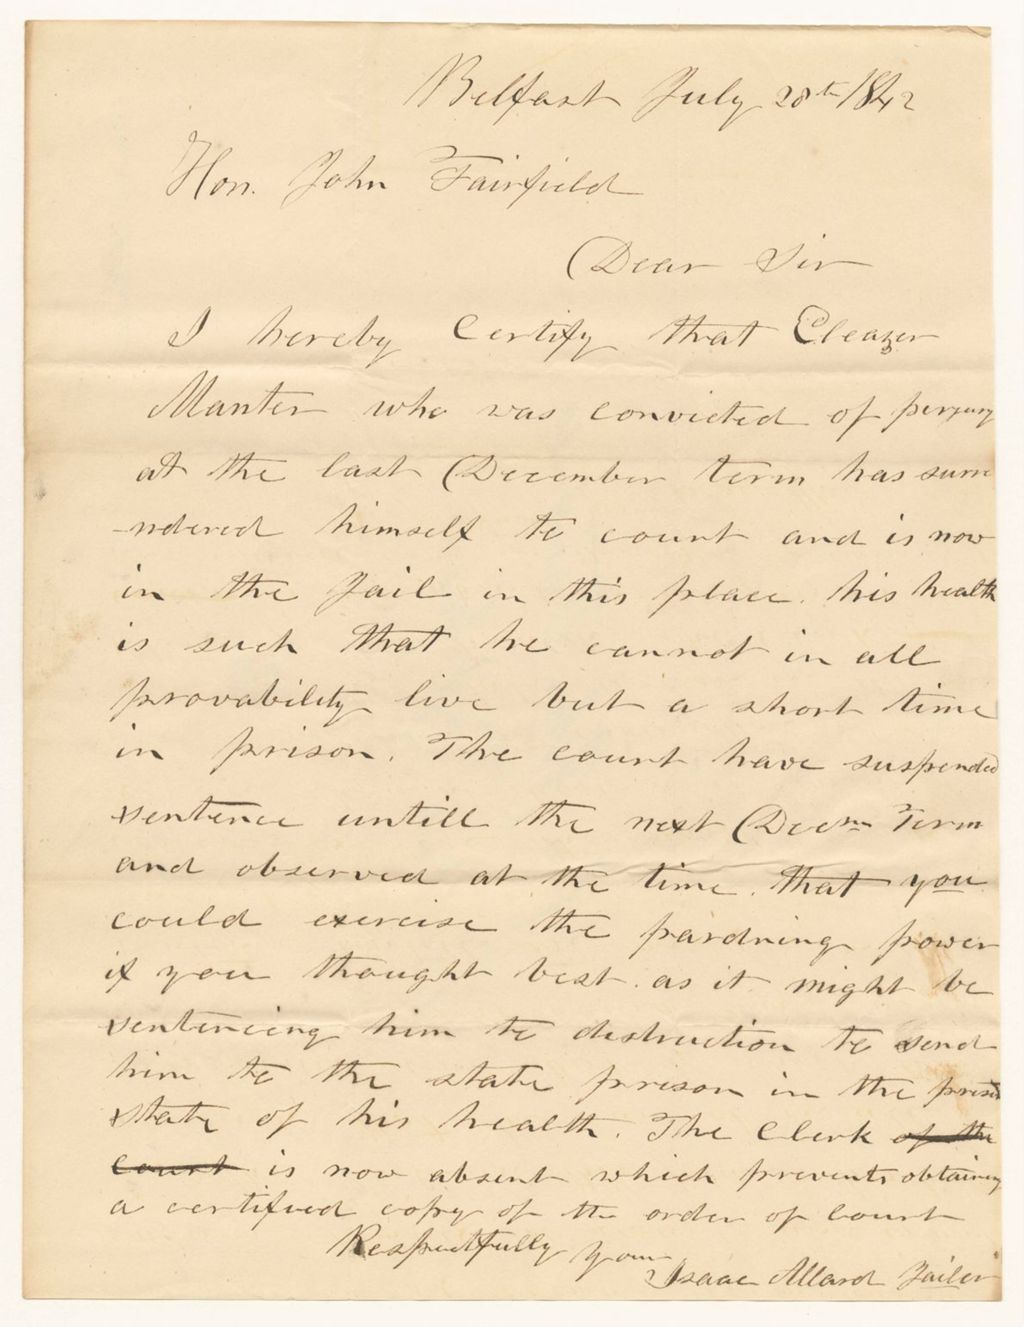 Belfast July 28th 1842
Hon. John Fairfield
Dear Sir
I hereby Certify that Eleazer
Manter who was convicted of perjury
at the last December term has surre
-ndered himself to court and is now
in the Jail in this place. his health
is such that he cannot in all
provability live but a short time
in prison. The court have suspended
sentence untill the next Decm Term
and observed at the time. that you
could exercise the pardning power
if you thought best. as it might be
sentencing him to distruction to send
him to the state prison in the present
state of his health. The Clerk of the
court is now absent which prevents obtaining
a certified copy of the order of Court
Respectfully Yours
Isaac Allard Jailer